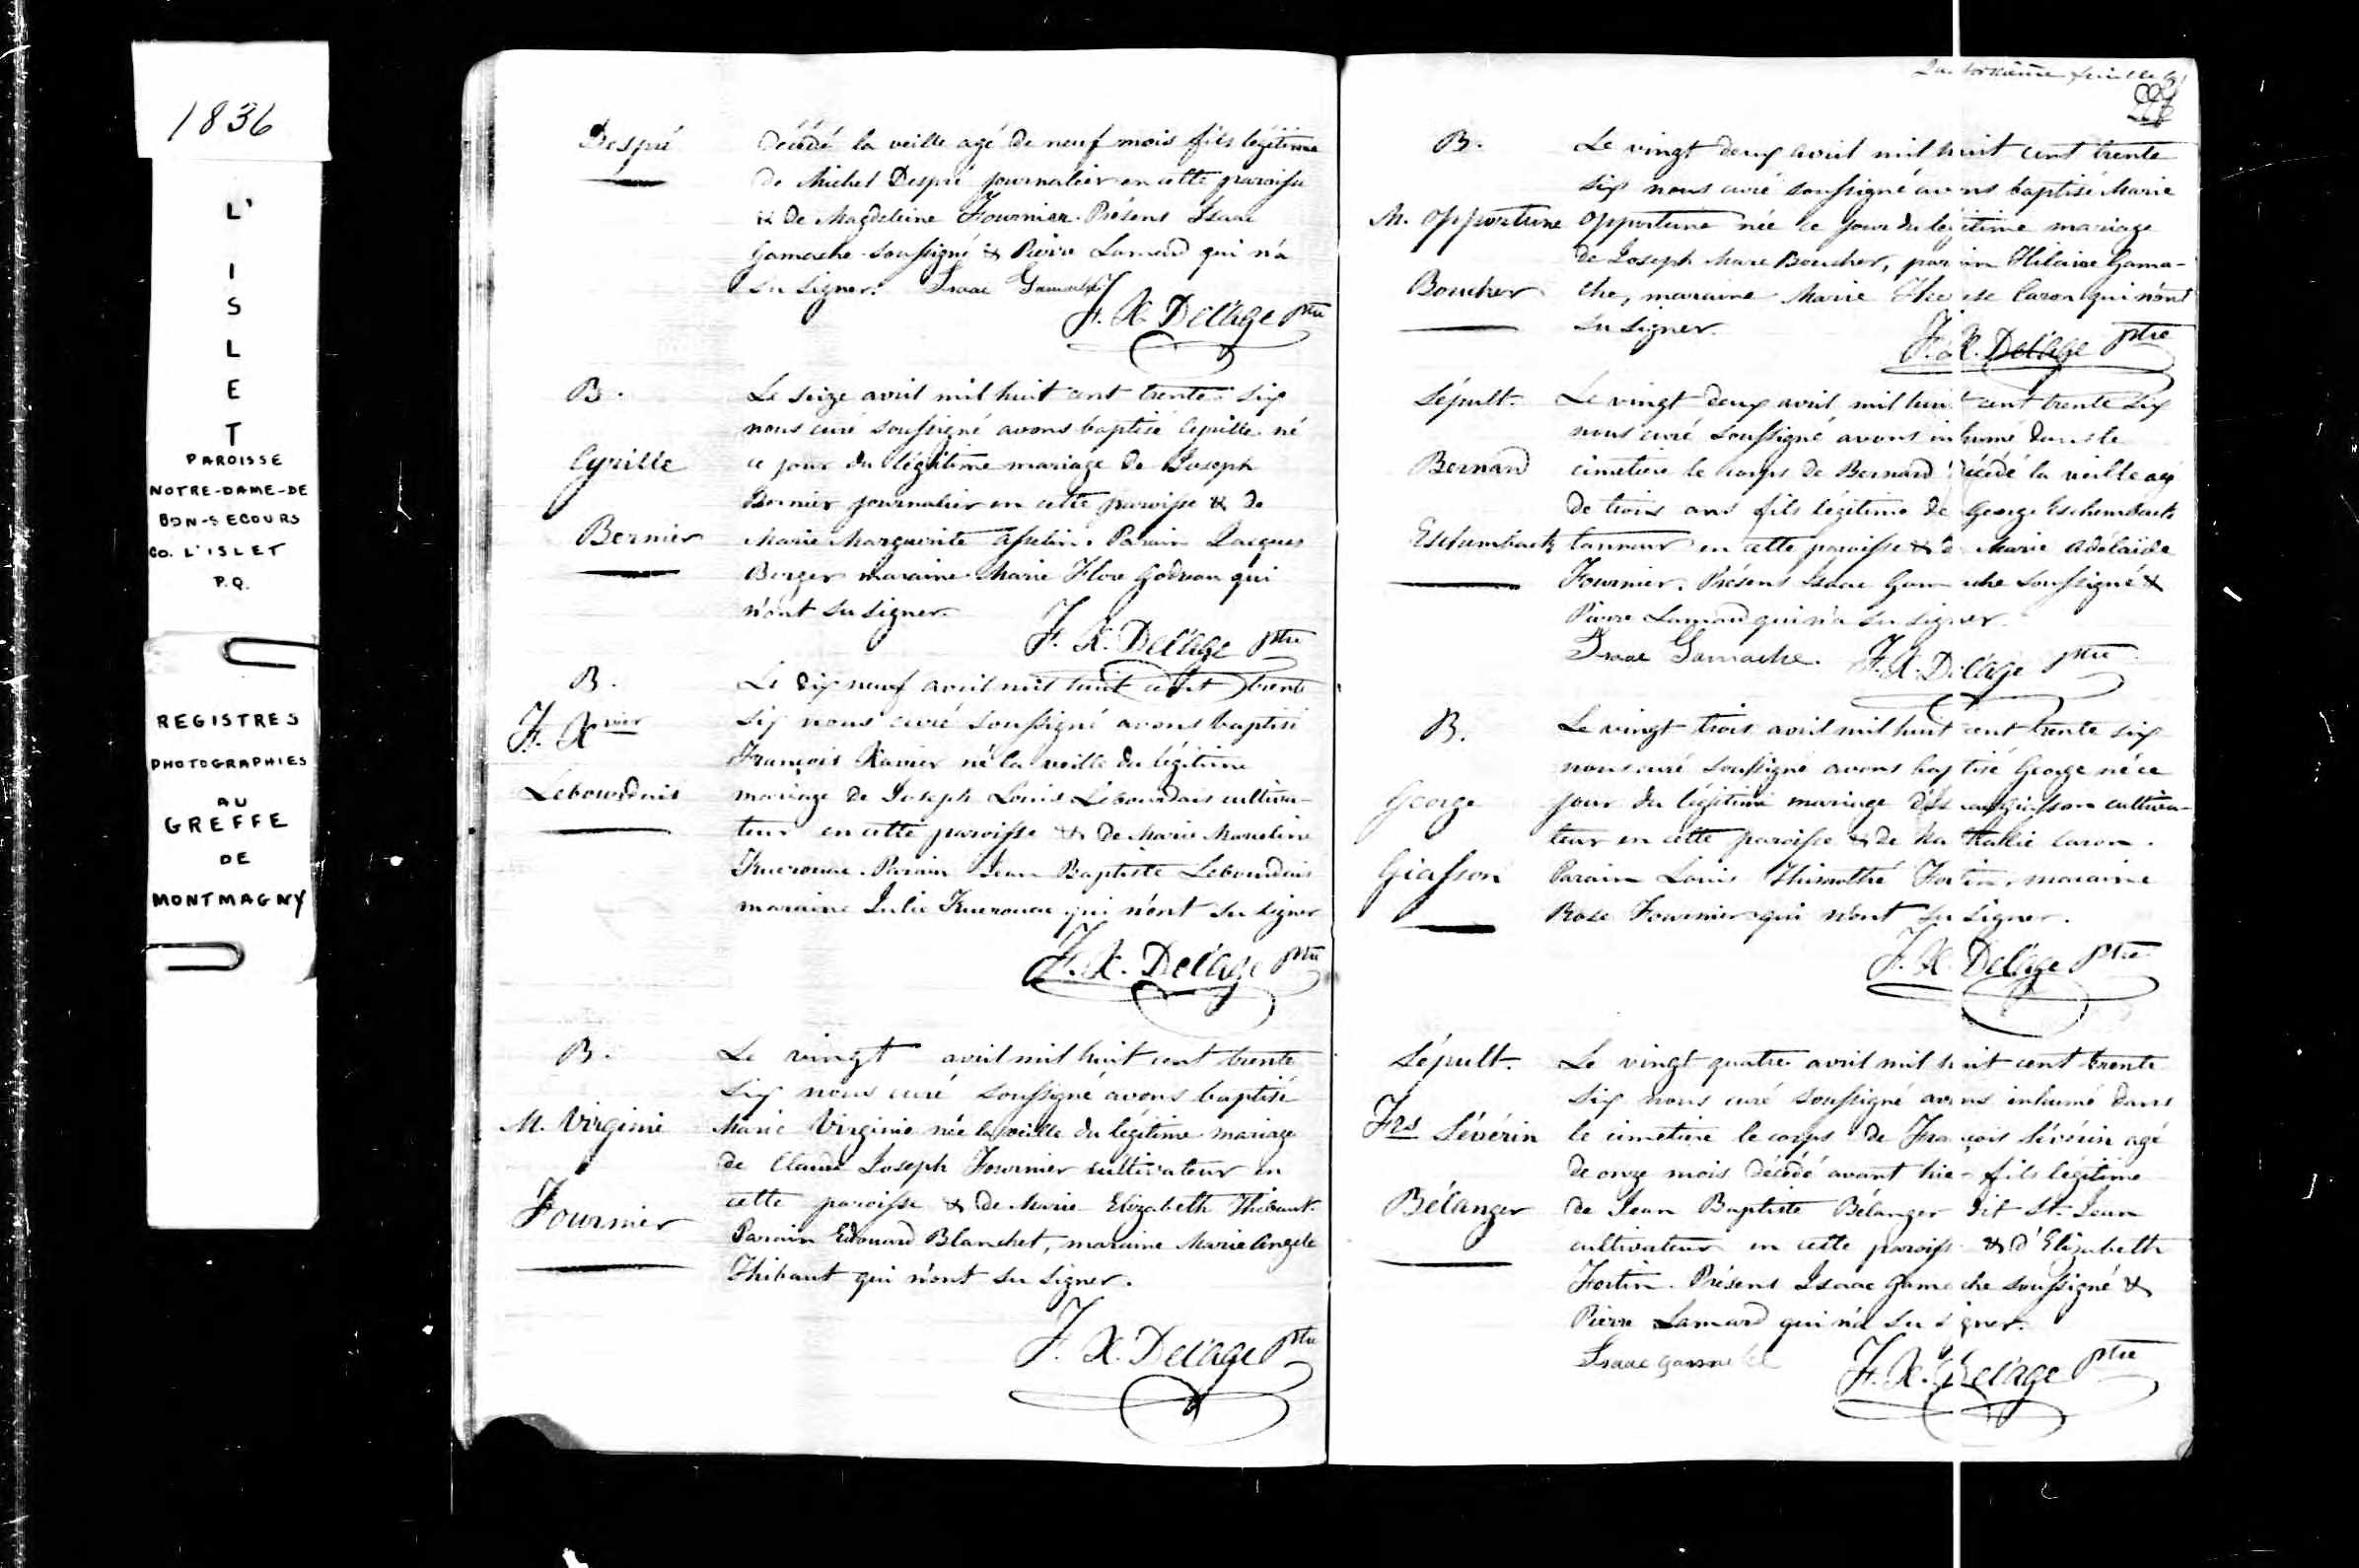 1836
L'
I
S
L
E
T
PAROISSE
NOTRE-DAME-DE
BON-SECOURS
Co. L'ISLET
P.Q.
REGISTRES
PHOTOGRAPHIES
AU
GREFFE
DE
MONTMAGNY
Despré
décédé la veille agé de neuf mois fils légitime
de Michel Despré journalier en cette paroisse
& de Magdeleine Fournier. Présens Isaac
Gamache soussigné & Pierre Lamard qui n'a
su signer. Isaac Gamache
F. X. Delâge ptre
B.
Cyrille
Bernier
Le seize avril mil huit cent trente six
nous curé soussigné avons baptisé Cyrille né
ce jour du légitime mariage de Joseph
Bernier journalier en cette paroisse & de
Marie Marguerite Asselin. Parain Jacques
Berger maraine Marie Flore Godreau qui
n'ont su signer.
F. X. Delâge ptre
B.
F. Xvier
Lebourdais
Le dix neuf avril mil huit cent trente
six nous curé soussigné avons baptisé
François Xavier né la veille du légitime
mariage de Joseph Louis Lebourdais cultiva-
teur en cette paroisse & de Marie Marceline
Kuerouac. Parain Jean Baptiste Lebourdais
maraine Julie Kuerouac qui n'ont su signer
F. X. Delâge ptre
B.
M. Virginie
Fournier
Le vingt avril mil huit cent trente
six nous curé soussigné avons baptisé
Marie Virginie née la veille du légitime mariage
de Claude Joseph Fournier cultivateur en
cette paroisse & de Marie Elizabeth Thibaut.
Parain Edouard Blanchet, maraine Marie Angele
Thibaut qui n'ont su signer.
F. X. Delâge ptre
B.
M. Opportune
Boucher
Le vingt deux avril mil huit cent trente
six nous curé soussigné avons baptisé Marie
Opportune née ce jour du légitime mariage
de Joseph Marc Boucher, parain Hilaire Gama-
che, maraine Marie Caron qui n'ont
su signer.
F. X. Delâge ptre
Sépult.
Bernard
Eschembach
Le vingt deux avril mil huit cent trente six
nous curé soussigné avons inhumé dans le
cimetière le corps de Bernard décédé la veille agé
de trois ans fils légitime de George Eschembach
tanneur en cette paroisse & de Marie Adélaide
Fournier. Présens Isaac Gamache soussigné &
Pierre Lamard qui n'a su signer.
Isaac Gamache. F. X. Delâge ptre
B.
George
Giasson
Le vingt trois avril mil huit cent trente six
nous curé soussigné avons baptisé George né ce
jour du légitime mariage Giasson cultiva-
teur en cette paroisse & de Nathalie Caron.
Parain Louis Thimothé Fortin, maraine
Rose Fournier qui n'ont su signer.
F. X. Delâge ptre
Sépult.
Frs Sévérin
Bélanger
Le vingt quatre avril mil huit cent trente
six nous curé soussigné avons inhumé dans
le cimetière le corps de François Sévérin agé
de onze mois décédé avant hier fils légitime
de Jean Baptiste Bélanger dit St. Jean
cultivateur en cette paroisse & d'Elizabeth
Fortin. Présens Isaac Gamache soussigné &
Pierre Lamard qui n'a su signer.
Isaac Gamache F. X. Delâge ptre